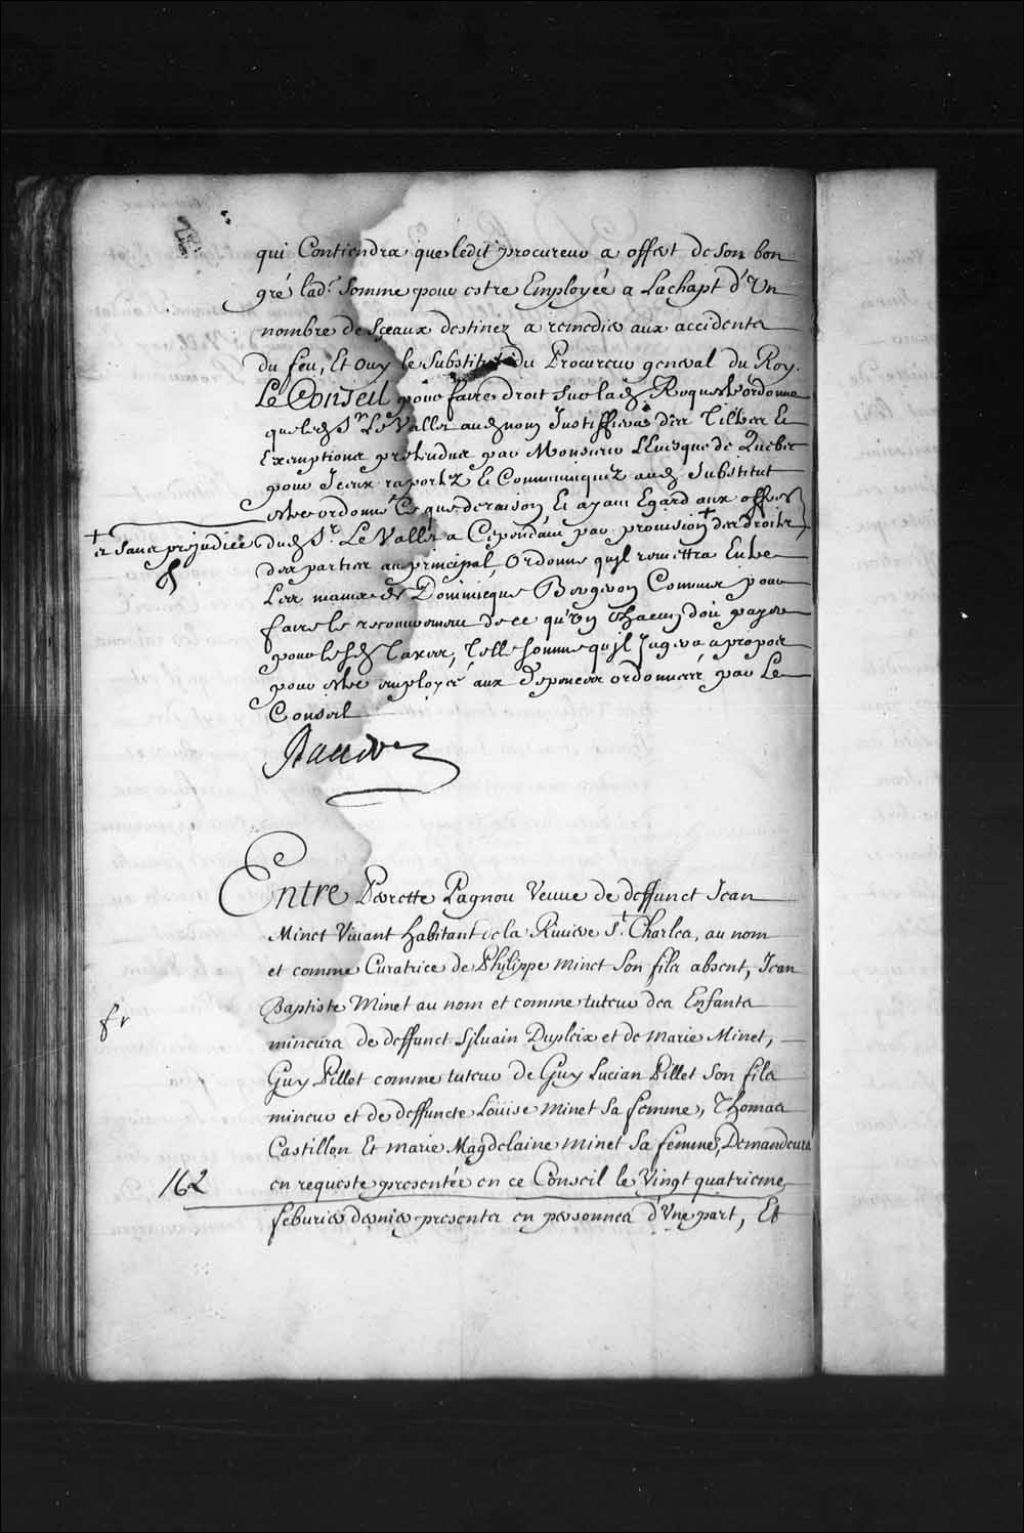 qui Contiendra que ledit procureur a offert de Son bon
gré lad.e Somme pour estre Employée a Lachapt d'Un
nombre de Sceaux destinez a remedier aux accidents
du feu, Et ouy le Substitut du Procureur general du Roy.
Le Conseil pour faire droit sur lad. Requeste ordonne
que led. Sr. Le Vallet aud. nom Justiffiera des Tiltres Et
Exemptions prétendues par Monsieur L'Evesque de Quebec
pour Iceux raportez Et Communiquez aud. Substitut
estre ordonné Ce que de raison, Et ayant Egard aux offres
+ et sans prejudice
dud. Sr. Le Vallet a Cependant par provision + des droits
des parties au principal, Ordonne qu'Il remettra Entre
Les mains de Dominicque Bergeron Commis pour
faire le recouvrement de ce qu'Un Chacun doit payer
pour lesd. Taxes, Telle Somme qu'Il Jugera a propos
pour estre employée aux despences ordonnées par Le
Conseil
Entre Perette Pagnou Veuve de deffunct Jean
Minet Vivant habitant de la Riviere St. Charles, au nom
et comme Curatrice de Philippe Minet Son fils absent, Jean
fr
Baptiste Minet au nom et comme tuteur des Enfants
mineurs de deffunct Silvain Dupleix et de Marie Minet,
Guy Pillet comme tuteur de Guy Lucian Pillet Son fils
mineur et de deffuncte Loüise Minet Sa femme, Thomas
Castillon Et marie Magdelaine Minet Sa femme, Demandeurs
162
en requeste presentée en ce Conseil le Vingt quatrieme
feburier dernier presents en personnes d'Une part, Et